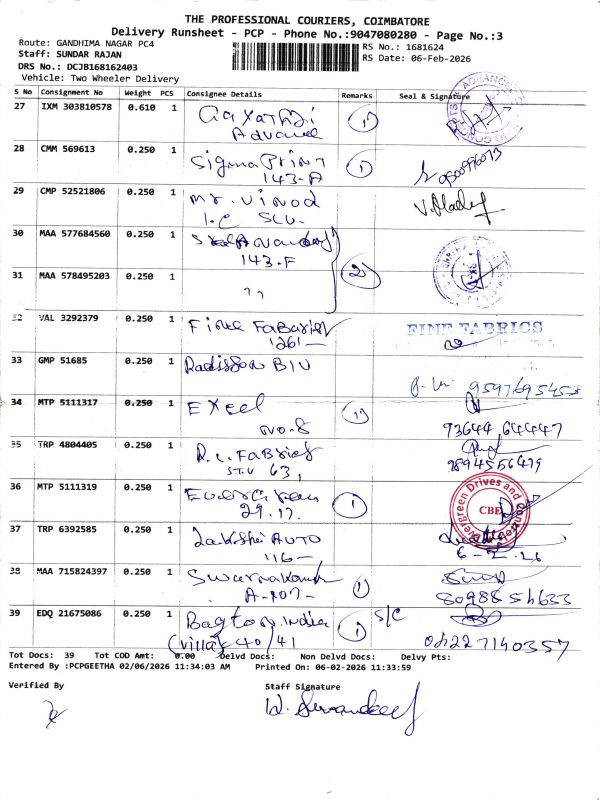 THE PROFESSIONAL COURIERS, COIMBATORE
Delivery Runsheet - PCP - Phone No.:9047080280 - Page No.:3
Route: GANDHIMA NAGAR PC4
Staff: SUNDAR RAJAN
DRS No.: DCJB168162403
Vehicle: Two Wheeler Delivery
RS No.: 1681624
RS Date: 06-Feb-2026
S No Consignment No Weight PCS Consignee Details Remarks Seal & Signature
27 IXM 303810578 0.610 1 Gayathri 1
Advance
28 CMM 569613 0.250 1 Sigma Print 1
143-A
29 CMP 52521806 0.250 1 Mr. Vinod
30 MAA 577684560 0.250 1
143-F
2
31 MAA 578495203 0.250 1 ,,
32 VAL 3292379 0.250 1 Fine FABRICS
126/-
33 GMP 51685 0.250 1 Radisson Blu 9597695453
34 MTP 5111317 0.250 1 Excel 1
No.8 93644 64447
35 TRP 4804405 0.250 1 R.C. Fabrics
63, 9894556479
36 MTP 5111319 0.250 1 Evergreen 1
29.17. Evergreen Drives and Controls CBE
37 TRP 6392585 0.250 1 Lakshi AUTO
116- 6-2-26
38 MAA 715824397 0.250 1 1
A-107- 80988 54633
39 EDQ 21675086 0.250 1 Bagtory India 1 S/C
(Villa) 40/41 04227140357
Tot Docs: 39 Tot COD Amt: 0.00 Delvd Docs: Non Delvd Docs: Delvy Pts:
Entered By :PCPGEETHA 02/06/2026 11:34:03 AM Printed On: 06-02-2026 11:33:59
Verified By Staff Signature